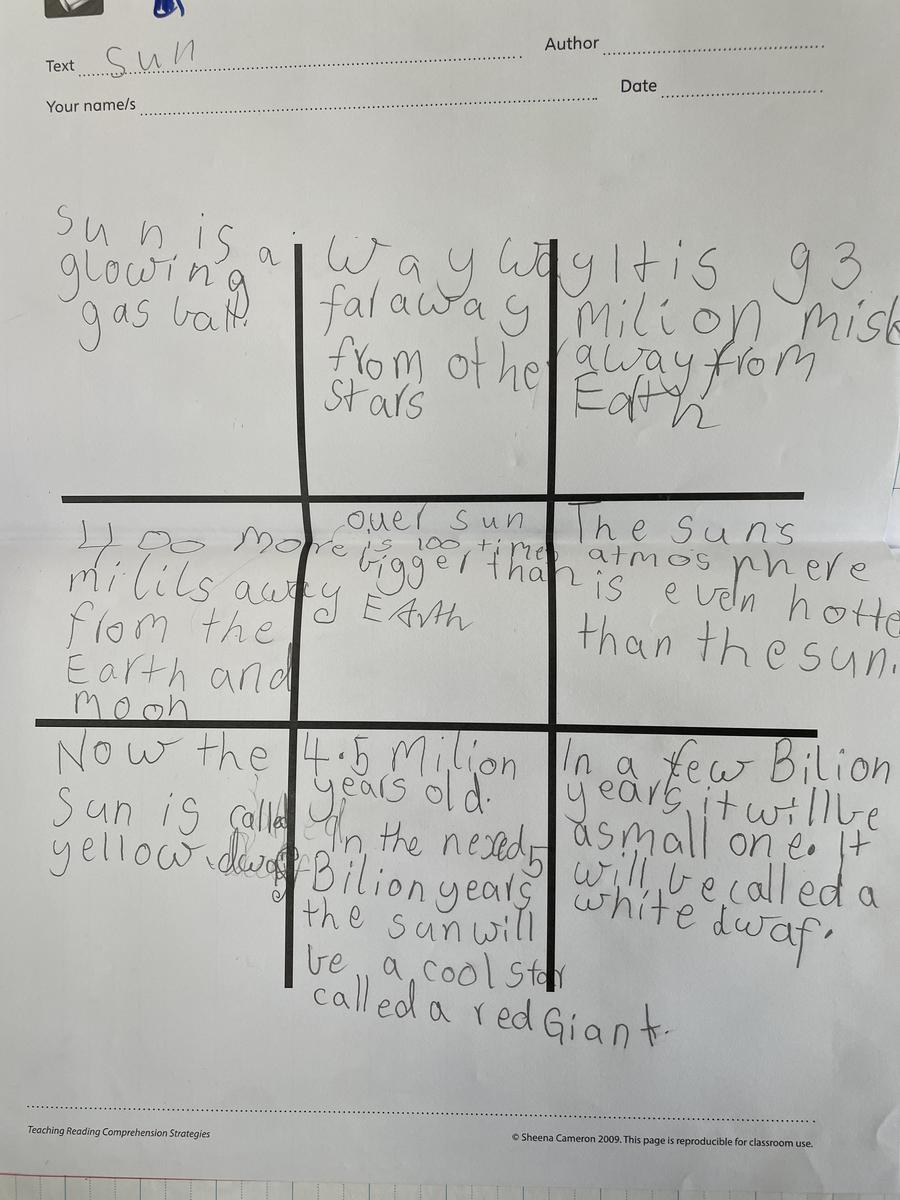 Text Sun
Author
Your name/s
Date
sun is a
glowing
gas ball.
Way Way
faraway
from other
stars
It is 93
Milion misl
away from
Eath
400 more
milils away
from the
Earth and
Moon
ouer sun
is 100 times
bigger than
EArth
The sun's
atmosphere
is even hotte
than the sun.
Now the
Sun is called
yellow dwaf
4.5 Milion
years old.
In the nexed 5
Bilion years
the sun will
be a cool star
called a red Giant.
In a few Bilion
years, it will be
a small one. It
will be called a
white dwaf.
Teaching Reading Comprehension Strategies
© Sheena Cameron 2009. This page is reproducible for classroom use.